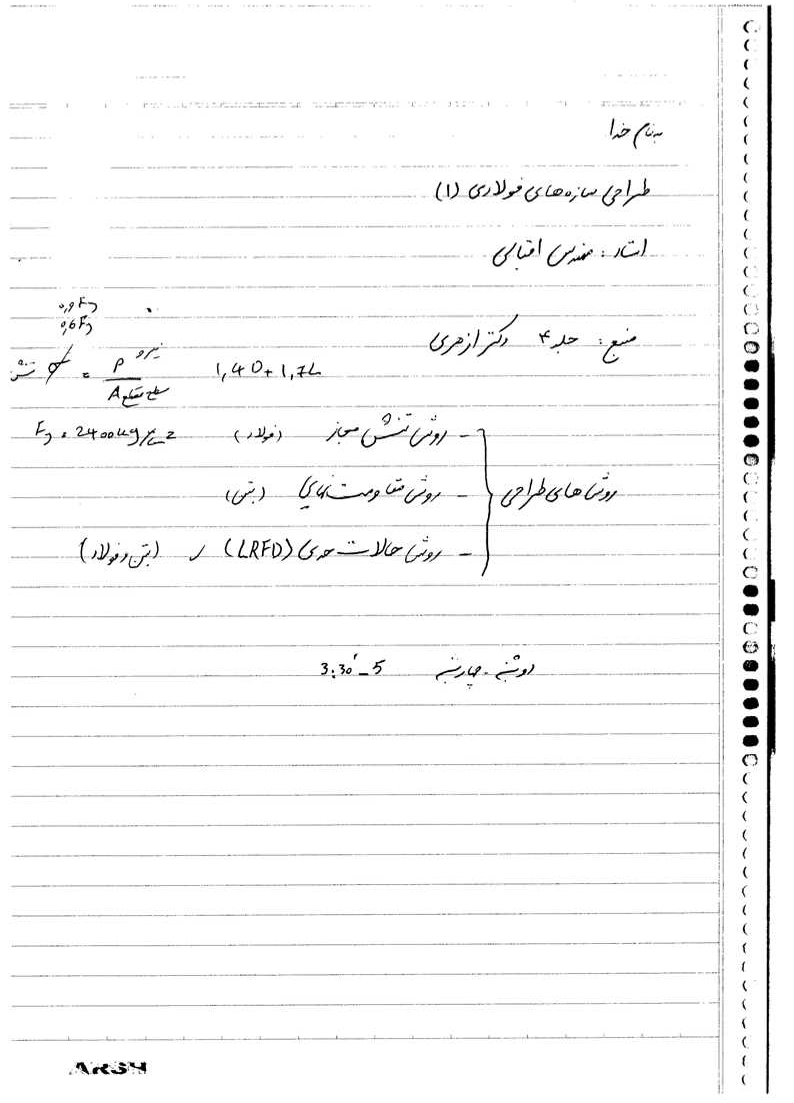 بنام خدا
طراحی سازه‌های فولادی (۱)
استاد: مهندس اقبالی
منبع: جلد ۴ دکتر ازهری
0,9 Fy
0,6 Fy
1,4D+1,7L
تنش σ = P نیرو / A سطح مقطع
روش‌های طراحی
- روش تنش مجاز (فولاد) Fy = 2400 kg/cm2
- روش مقاومت نهایی (بتن)
- روش حالات حدی (LRFD) (بتن و فولاد)
دوشنبه - چهارشنبه 3:30 - 5
ARSH